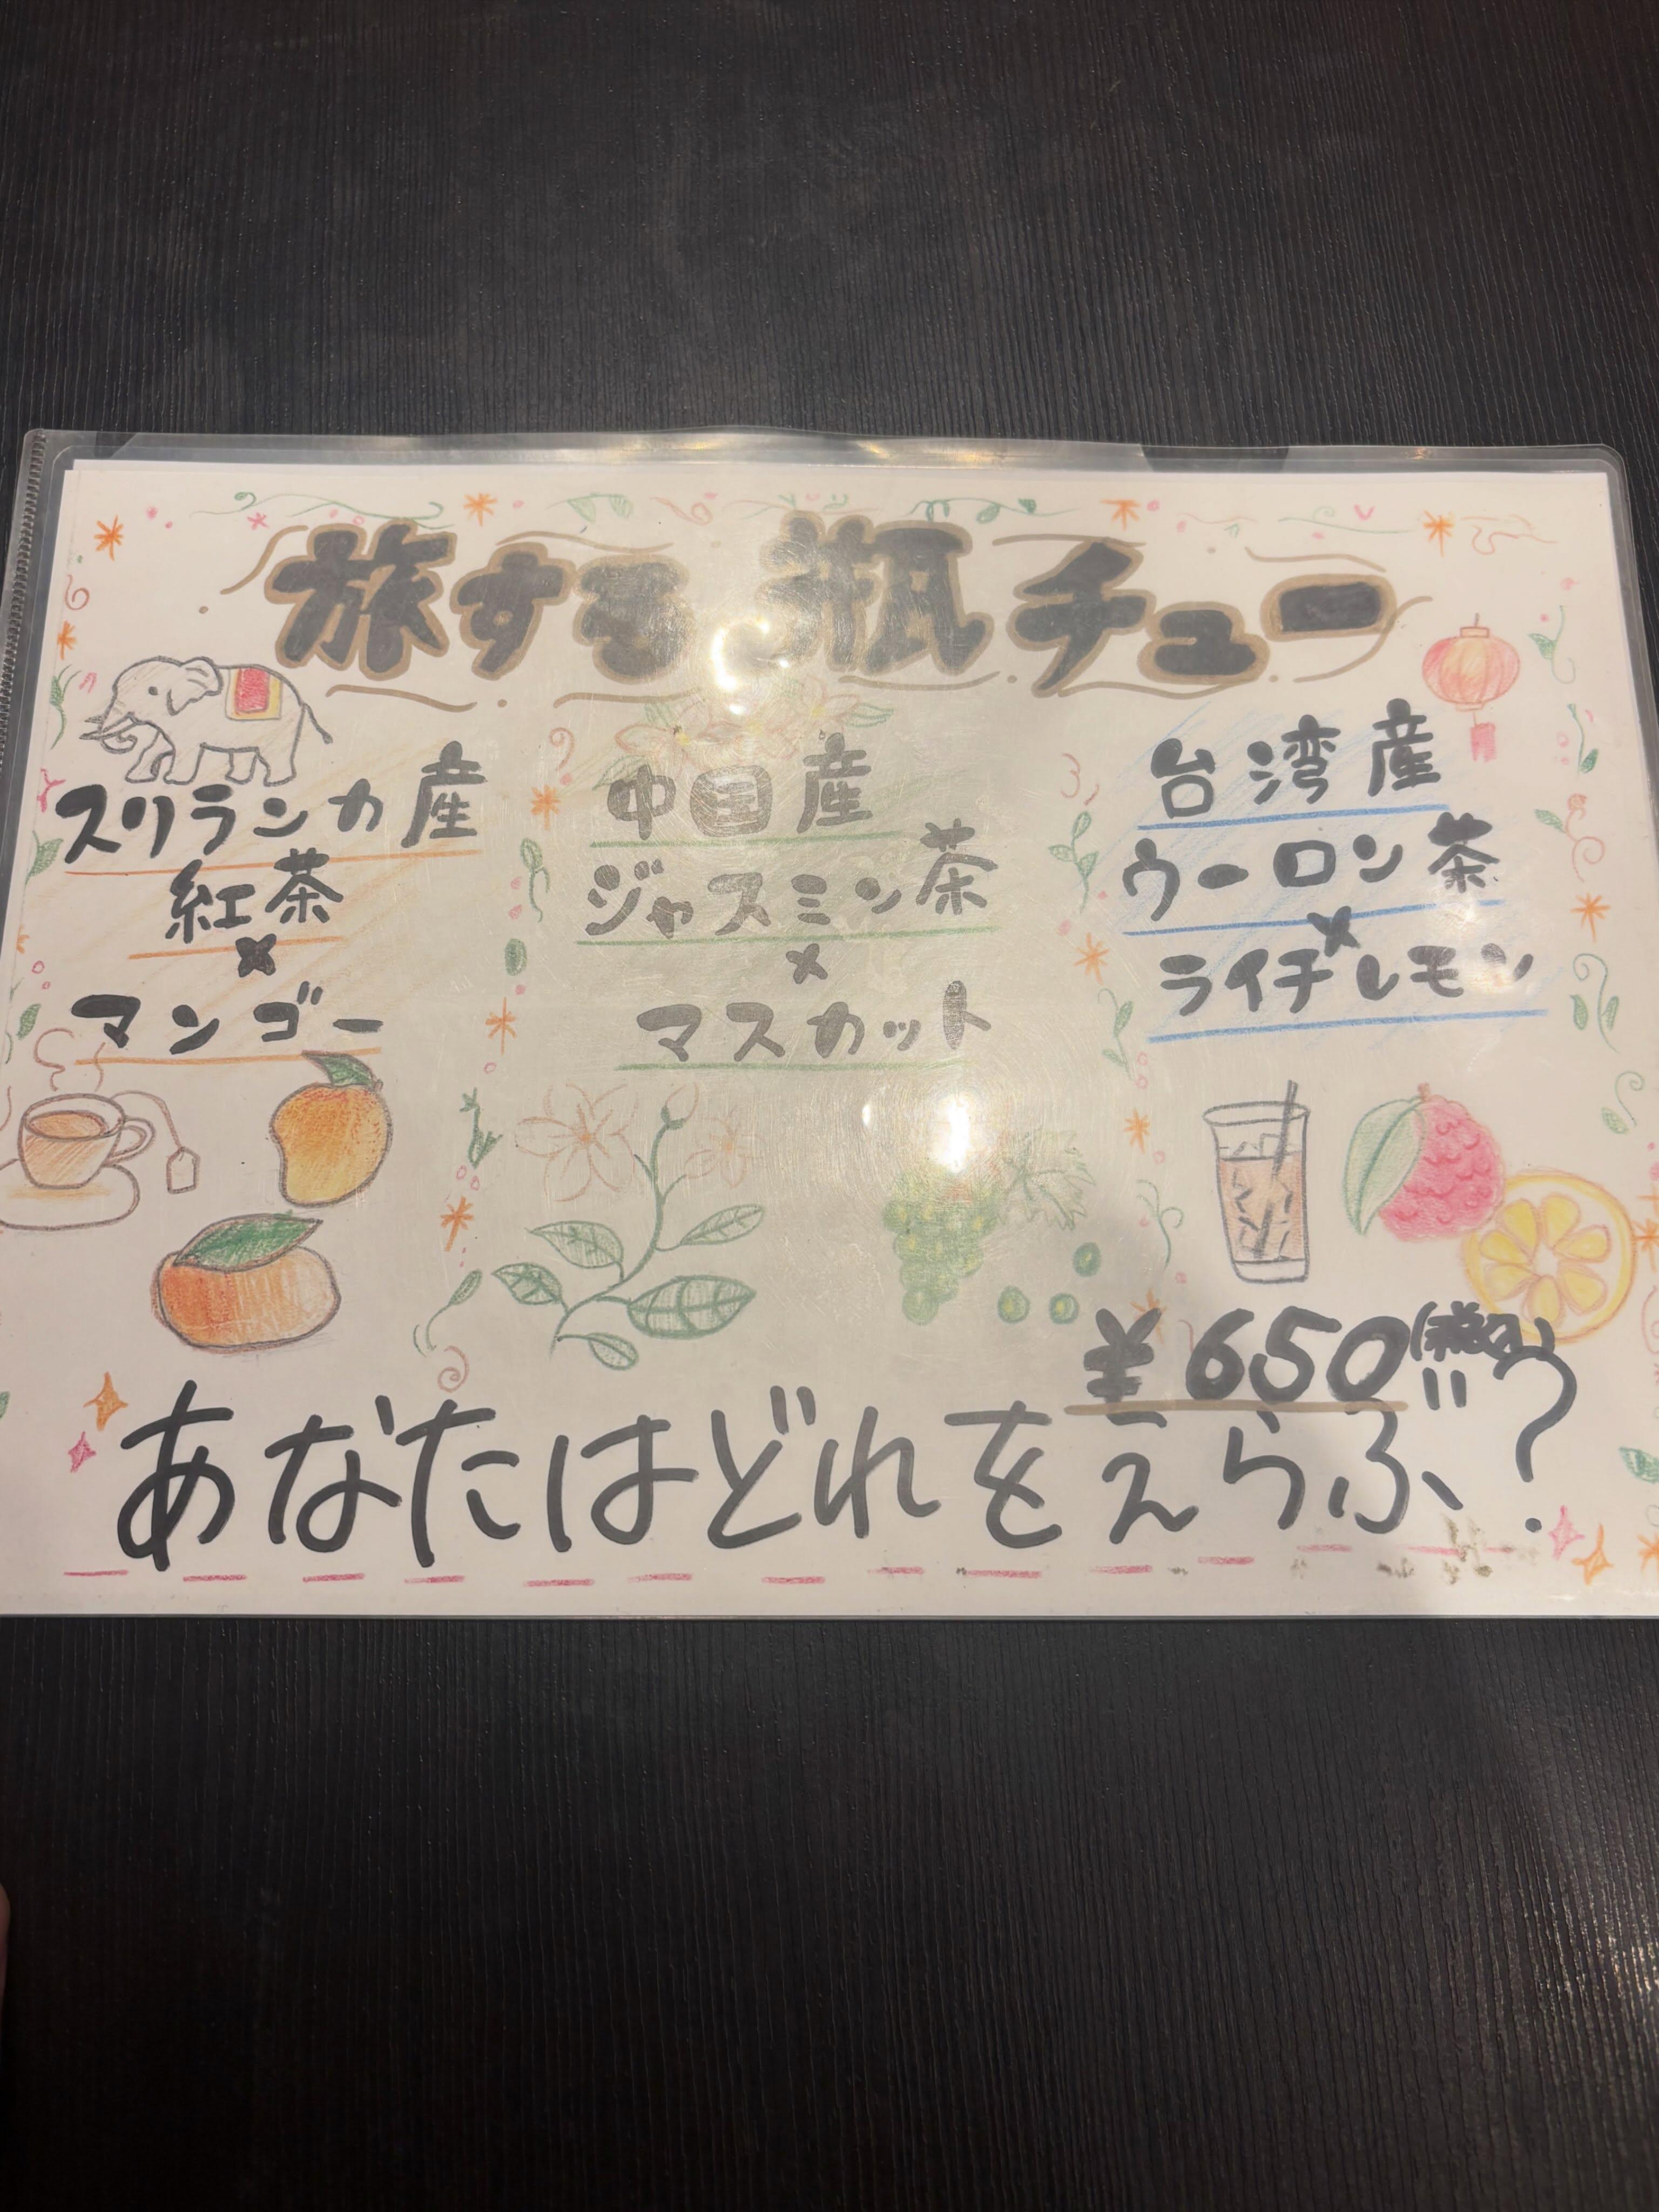 旅する瓶チュー
スリランカ産
紅茶
×
マンゴー
中国産
ジャスミン茶
×
マスカット
台湾産
ウーロン茶
×
ライチレモン
¥650(税込)
あなたはどれをえらぶ!!?